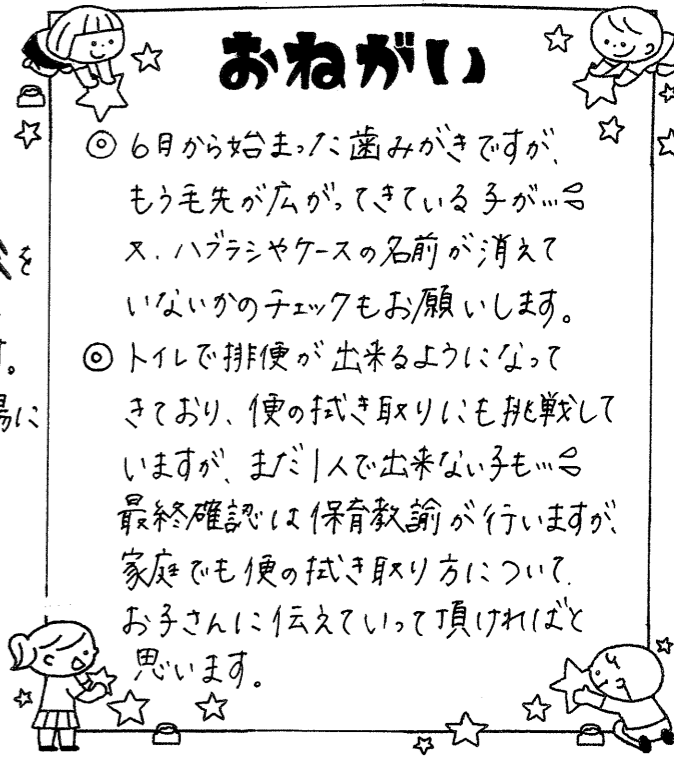 おねがい
◎ 6月から始まった歯みがきですが、
もう毛先が広がってきている子が…
又、ハブラシやケースの名前が消えて
いないかのチェックもお願いします。
◎ トイレで排便が出来るようになって
きており、便の拭き取りにも挑戦して
いますが、まだ1人で出来ない子も…
最終確認は保育教諭が行いますが、
家庭でも便の拭き取り方について、
お子さんに伝えていって頂ければと
思います。
を
す。
場に